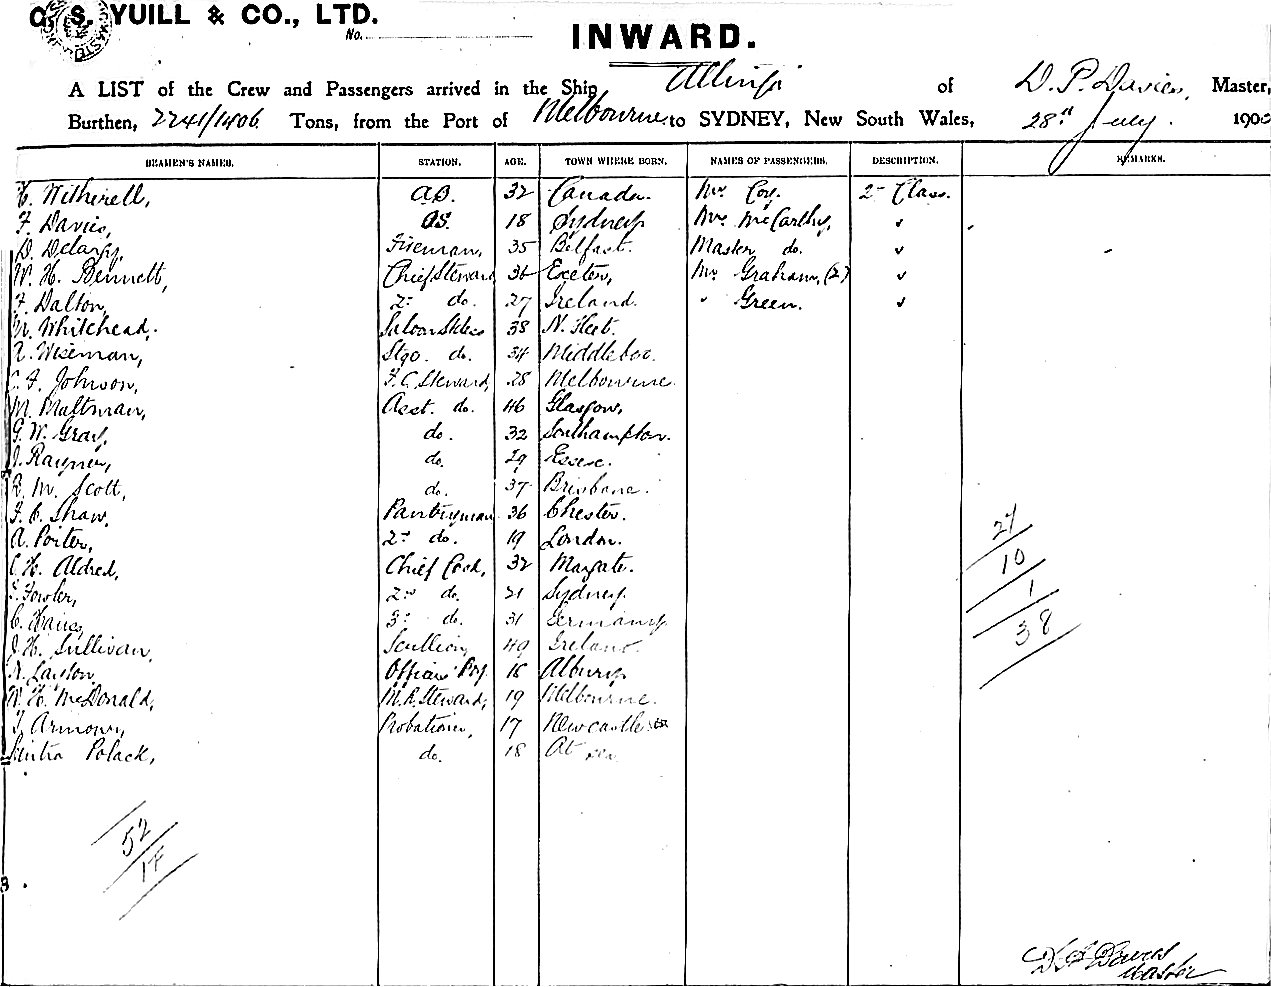 G. S. YUILL & CO., LTD.
No.
INWARD.
A LIST of the Crew and Passengers arrived in the Ship Allinga of D. P. Davies, Master,
Burthen, 2241/1406 Tons, from the Port of Melbourne to SYDNEY, New South Wales, 28th July. 190
SEAMEN'S NAMES. STATION. AGE. TOWN WHERE BORN. NAMES OF PASSENGERS. DESCRIPTION. REMARKS.
Witherell, AB. 32 Canada. Mr Coy. 2nd Class.
F. Davies, OS. 18 Sydney Mrs McCarthy, "
D. Delargy, Fireman, 35 Belfast. Master do. "
W. H. Bennett, Chief Steward 36 Exeter, Mr Graham, (2) "
F. Dalton, 2nd do. 27 Ireland. " Green. "
M. Whitehead. Saloon 38
Wiseman, Stge. do. 34 Middlebro.
F. Johnson, F. C. Steward, 28 Melbourne.
M. Maltman, Asst. do. 46 Glasgow,
G. W. Gray, do. 32 Southampton.
J. Rayner, do. 29 Essex.
R. M. Scott, do. 37 Brisbane.
F. C. Shaw, Pantryman 36 Chester.
A. Porter, 2nd do. 19 London.
C. H. Aldred, Chief Cook, 32 Margate.
Fowler, 2nd do. 21 Sydney
C. 3rd do. 31 Germany
J. H. Sullivan, Scullion, 49 Ireland.
Layton, Officers' Boy. 16 Albury
W. H. McDonald, M.R. Steward, 19 Melbourne.
J. Armour, Probationer, 17 Newcastle
Polack, do. 18 At sea
27
10
1
38
52
14
Master